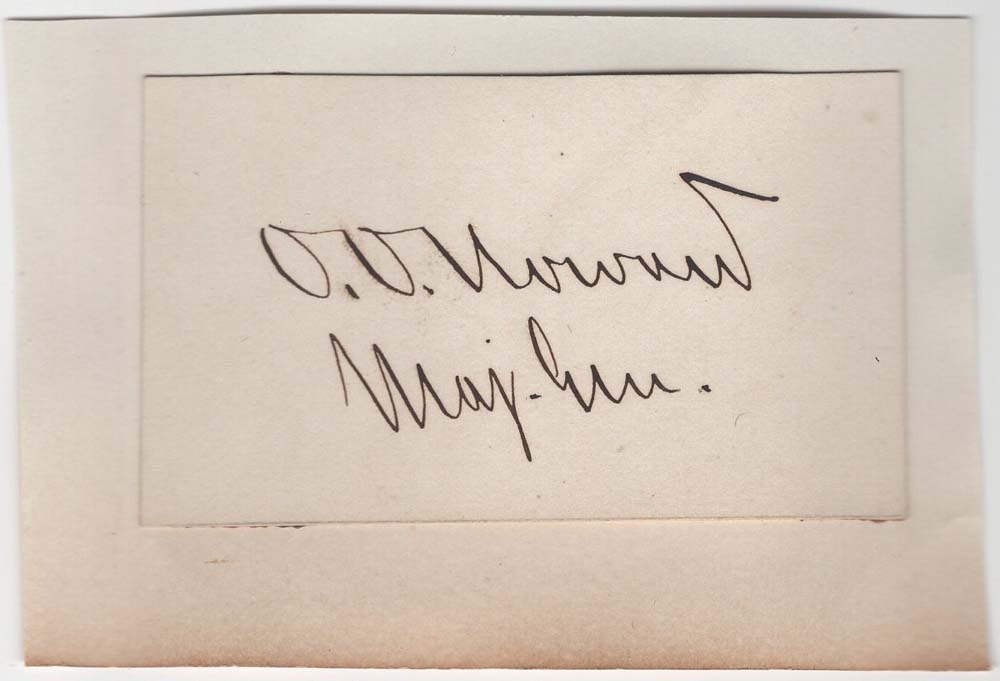 O. O. Howard
Maj-Gen.